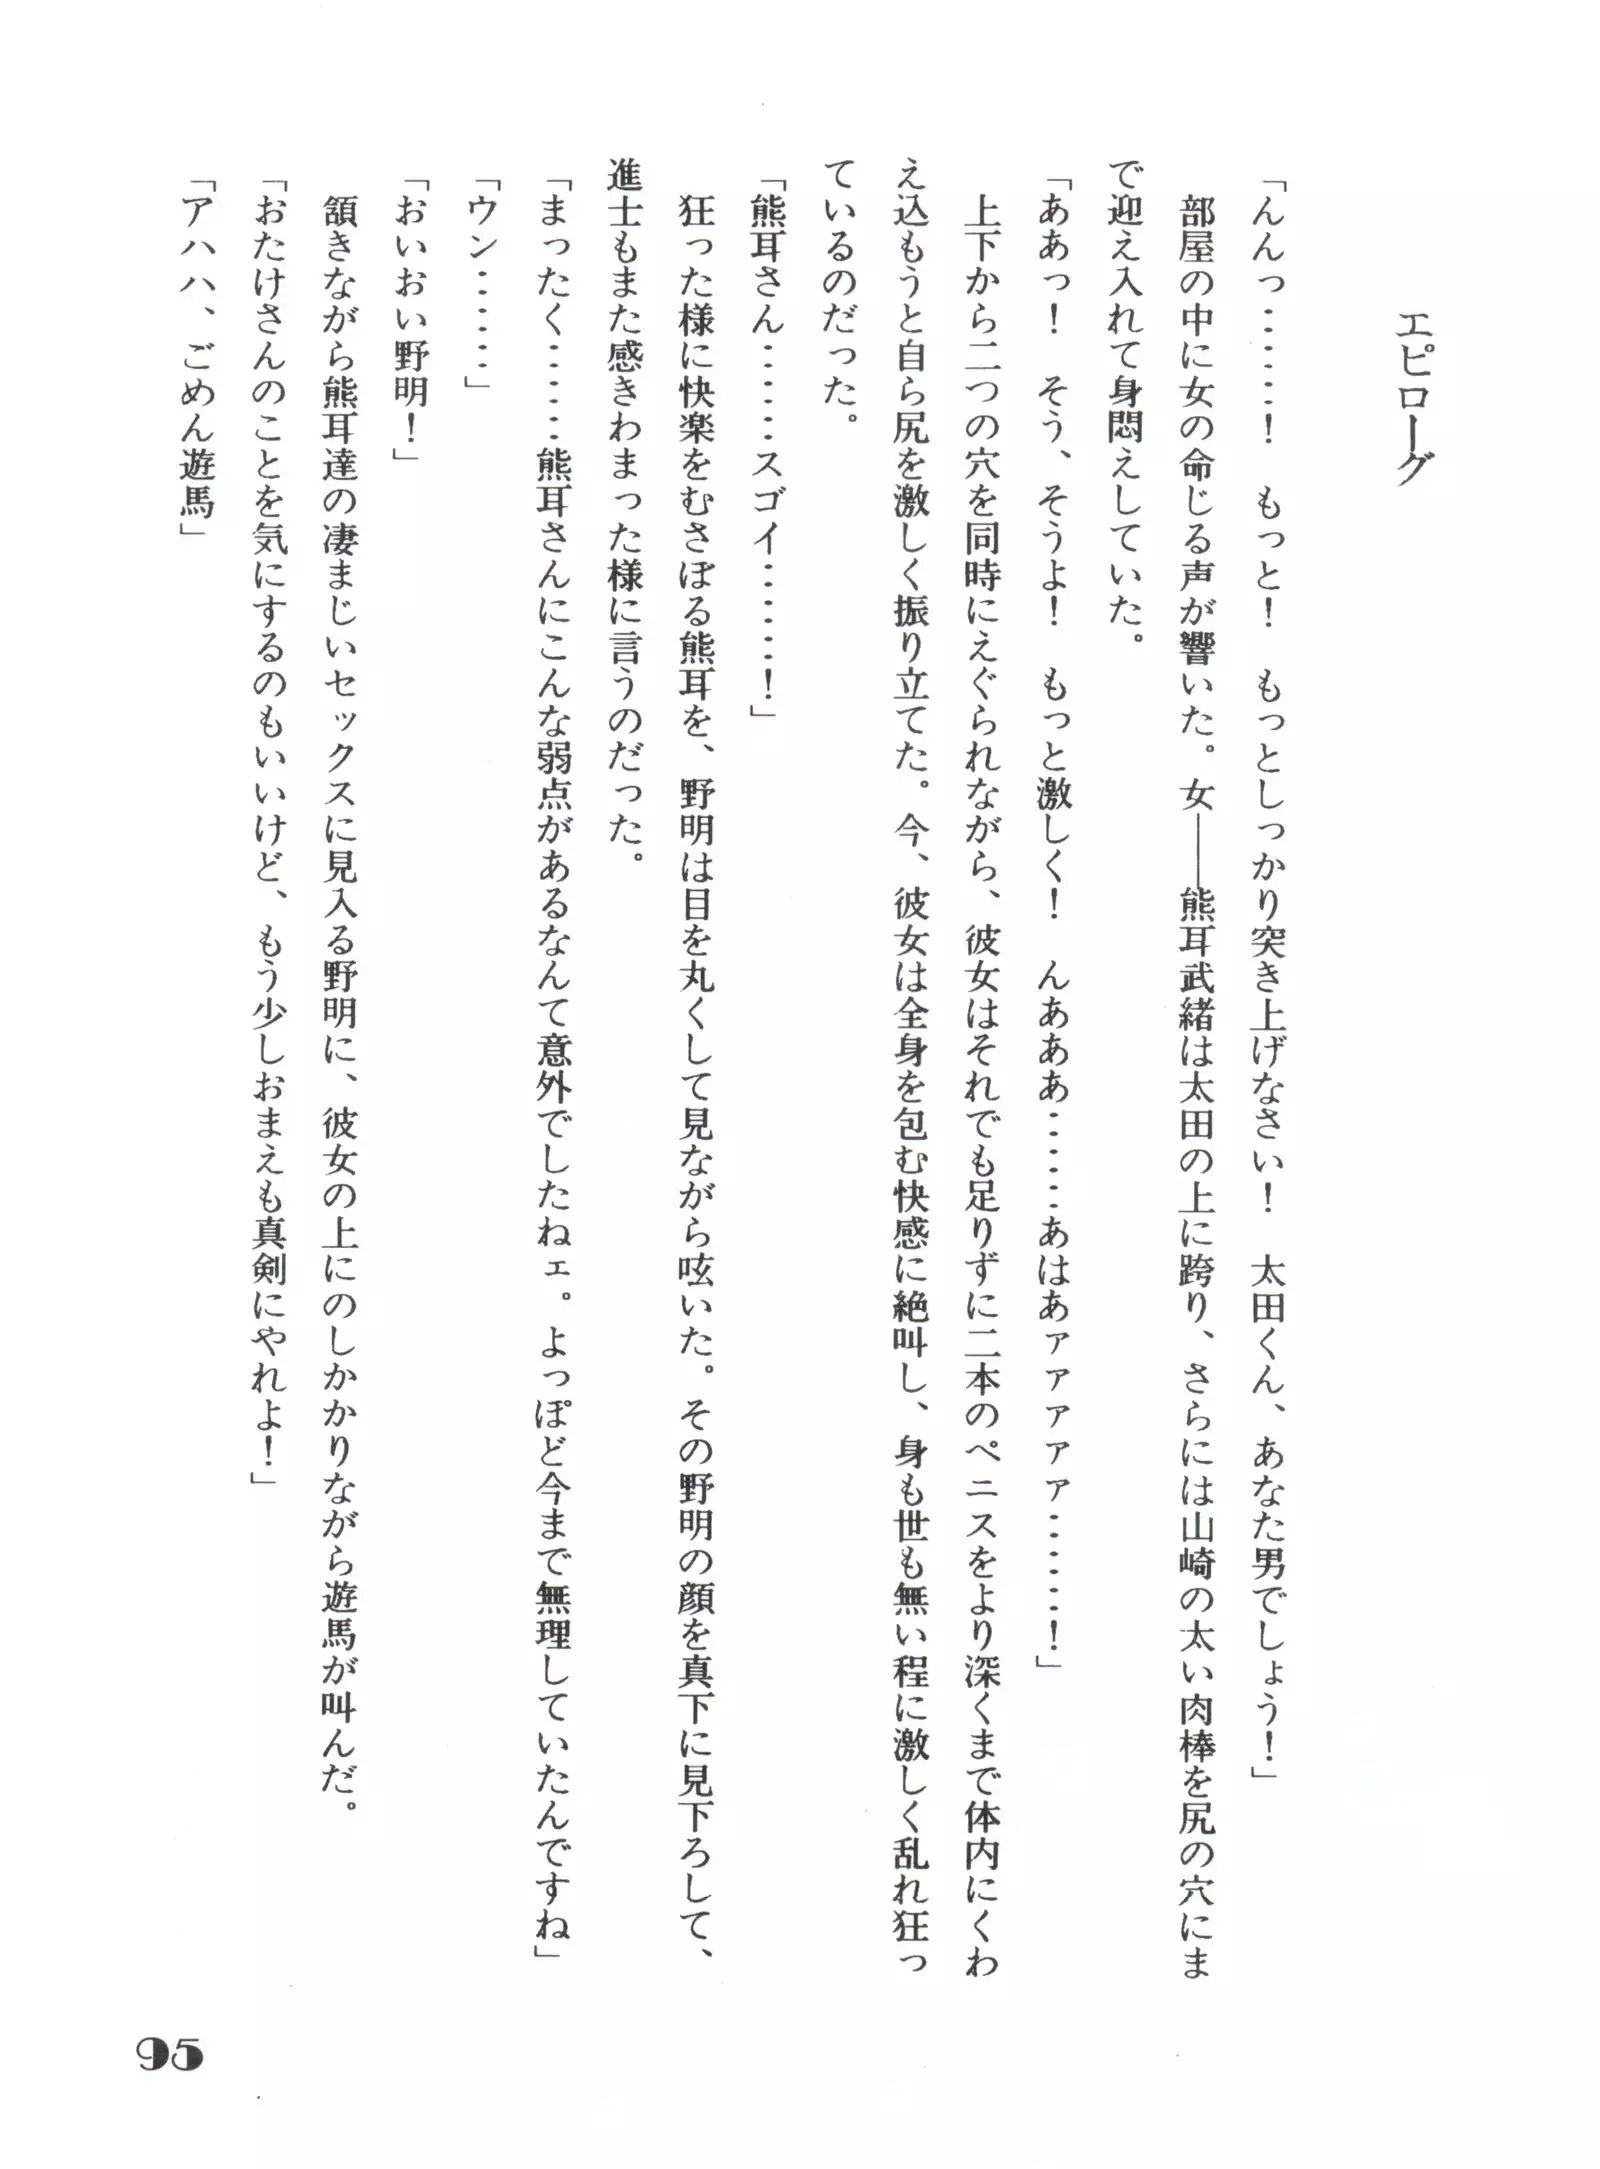 エピローグ
「んんっ……！　もっと！　もっとしっかり突き上げなさい！　太田くん、あなた男でしょう！」
部屋の中に女の命じる声が響いた。女――熊耳武緒は太田の上に跨り、さらには山崎の太い肉棒を尻の穴にま
で迎え入れて身悶えしていた。
「ああっ！　そう、そうよ！　もっと激しく！　んあああ……あはあァァァァァ……！」
上下から二つの穴を同時にえぐられながら、彼女はそれでも足りずに二本のペニスをより深くまで体内にくわ
え込もうと自ら尻を激しく振り立てた。今、彼女は全身を包む快感に絶叫し、身も世も無い程に激しく乱れ狂っ
ているのだった。
「熊耳さん……スゴイ……！」
狂った様に快楽をむさぼる熊耳を、野明は目を丸くして見ながら呟いた。その野明の顔を真下に見下ろして、
進士もまた感きわまった様に言うのだった。
「まったく……熊耳さんにこんな弱点があるなんて意外でしたねェ。よっぽど今まで無理していたんですね」
「ウン……」
「おいおい野明！」
頷きながら熊耳達の凄まじいセックスに見入る野明に、彼女の上にのしかかりながら遊馬が叫んだ。
「おたけさんのことを気にするのもいいけど、もう少しおまえも真剣にやれよ！」
「アハハ、ごめん遊馬」
95